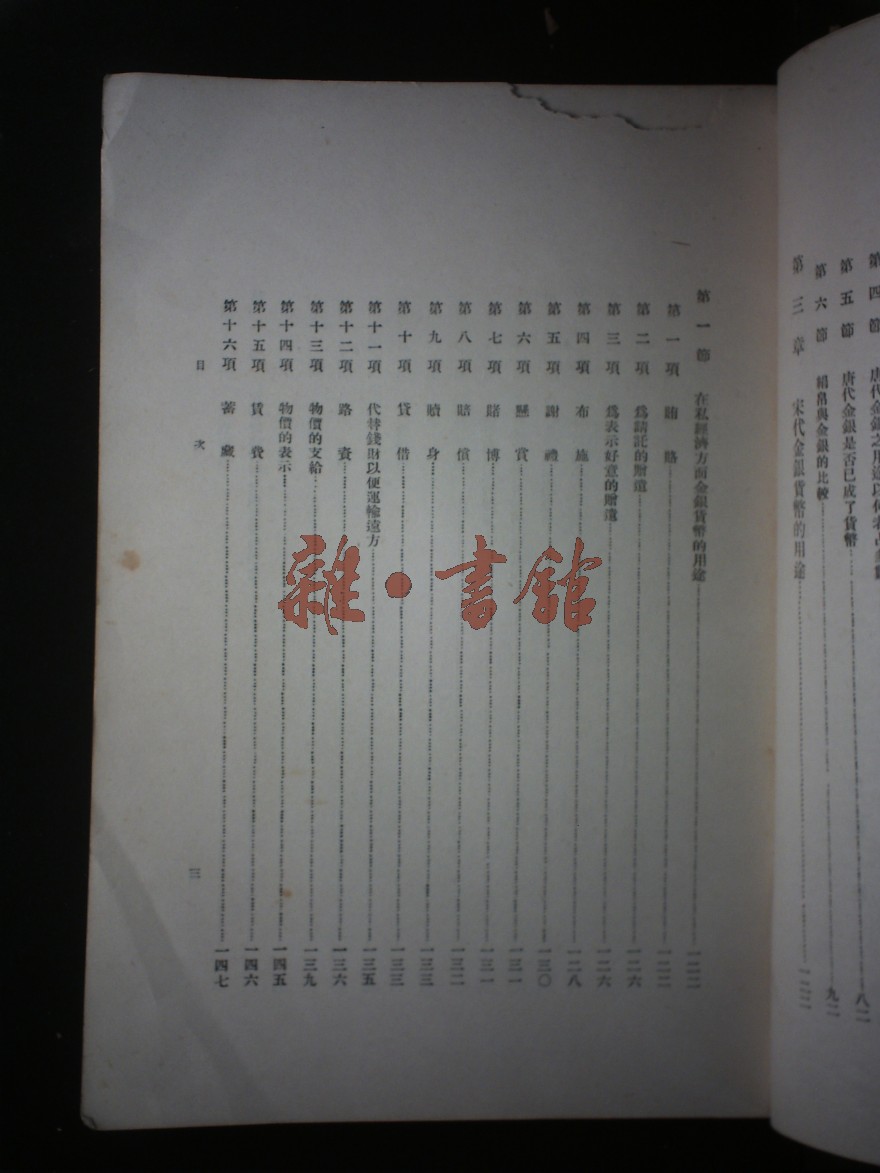 唐代金銀之用途以何者占多數
第五節 唐代金銀是否已成了貨幣 八二
第六節 絹帛與金銀的比較 九二
第三章 宋代金銀貨幣的用途 一二二
第一節 在私經濟方面金銀貨幣的用途 一二二
第一項 賄賂 一二二
第二項 爲請託的贈遺 一二六
第三項 爲表示好意的贈遺 一二六
第四項 布施 一二八
第五項 謝禮 一三〇
第六項 懸賞 一三一
第七項 賭博 一三一
第八項 賠償 一三二
第九項 贖身 一三三
第十項 貸借 一三三
第十一項 代替錢財以便運輸遠方 一三五
第十二項 路資 一三六
第十三項 物價的支給 一三九
第十四項 物價的表示 一四五
第十五項 賃費 一四六
第十六項 蓄藏 一四七
目次 三
雜·書館